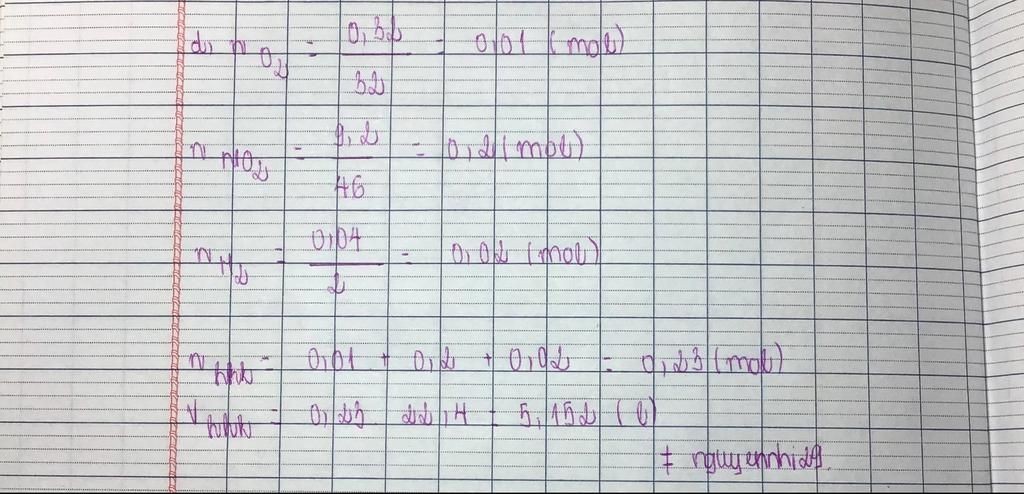 d, n O2 = 0,32 / 32 = 0,01 (mol)
n NO2 = 9,2 / 46 = 0,2 (mol)
n H2 = 0,04 / 2 = 0,02 (mol)
n hhk = 0,01 + 0,2 + 0,02 = 0,23 (mol)
V hhk = 0,23 . 22,4 = 5,152 (l)